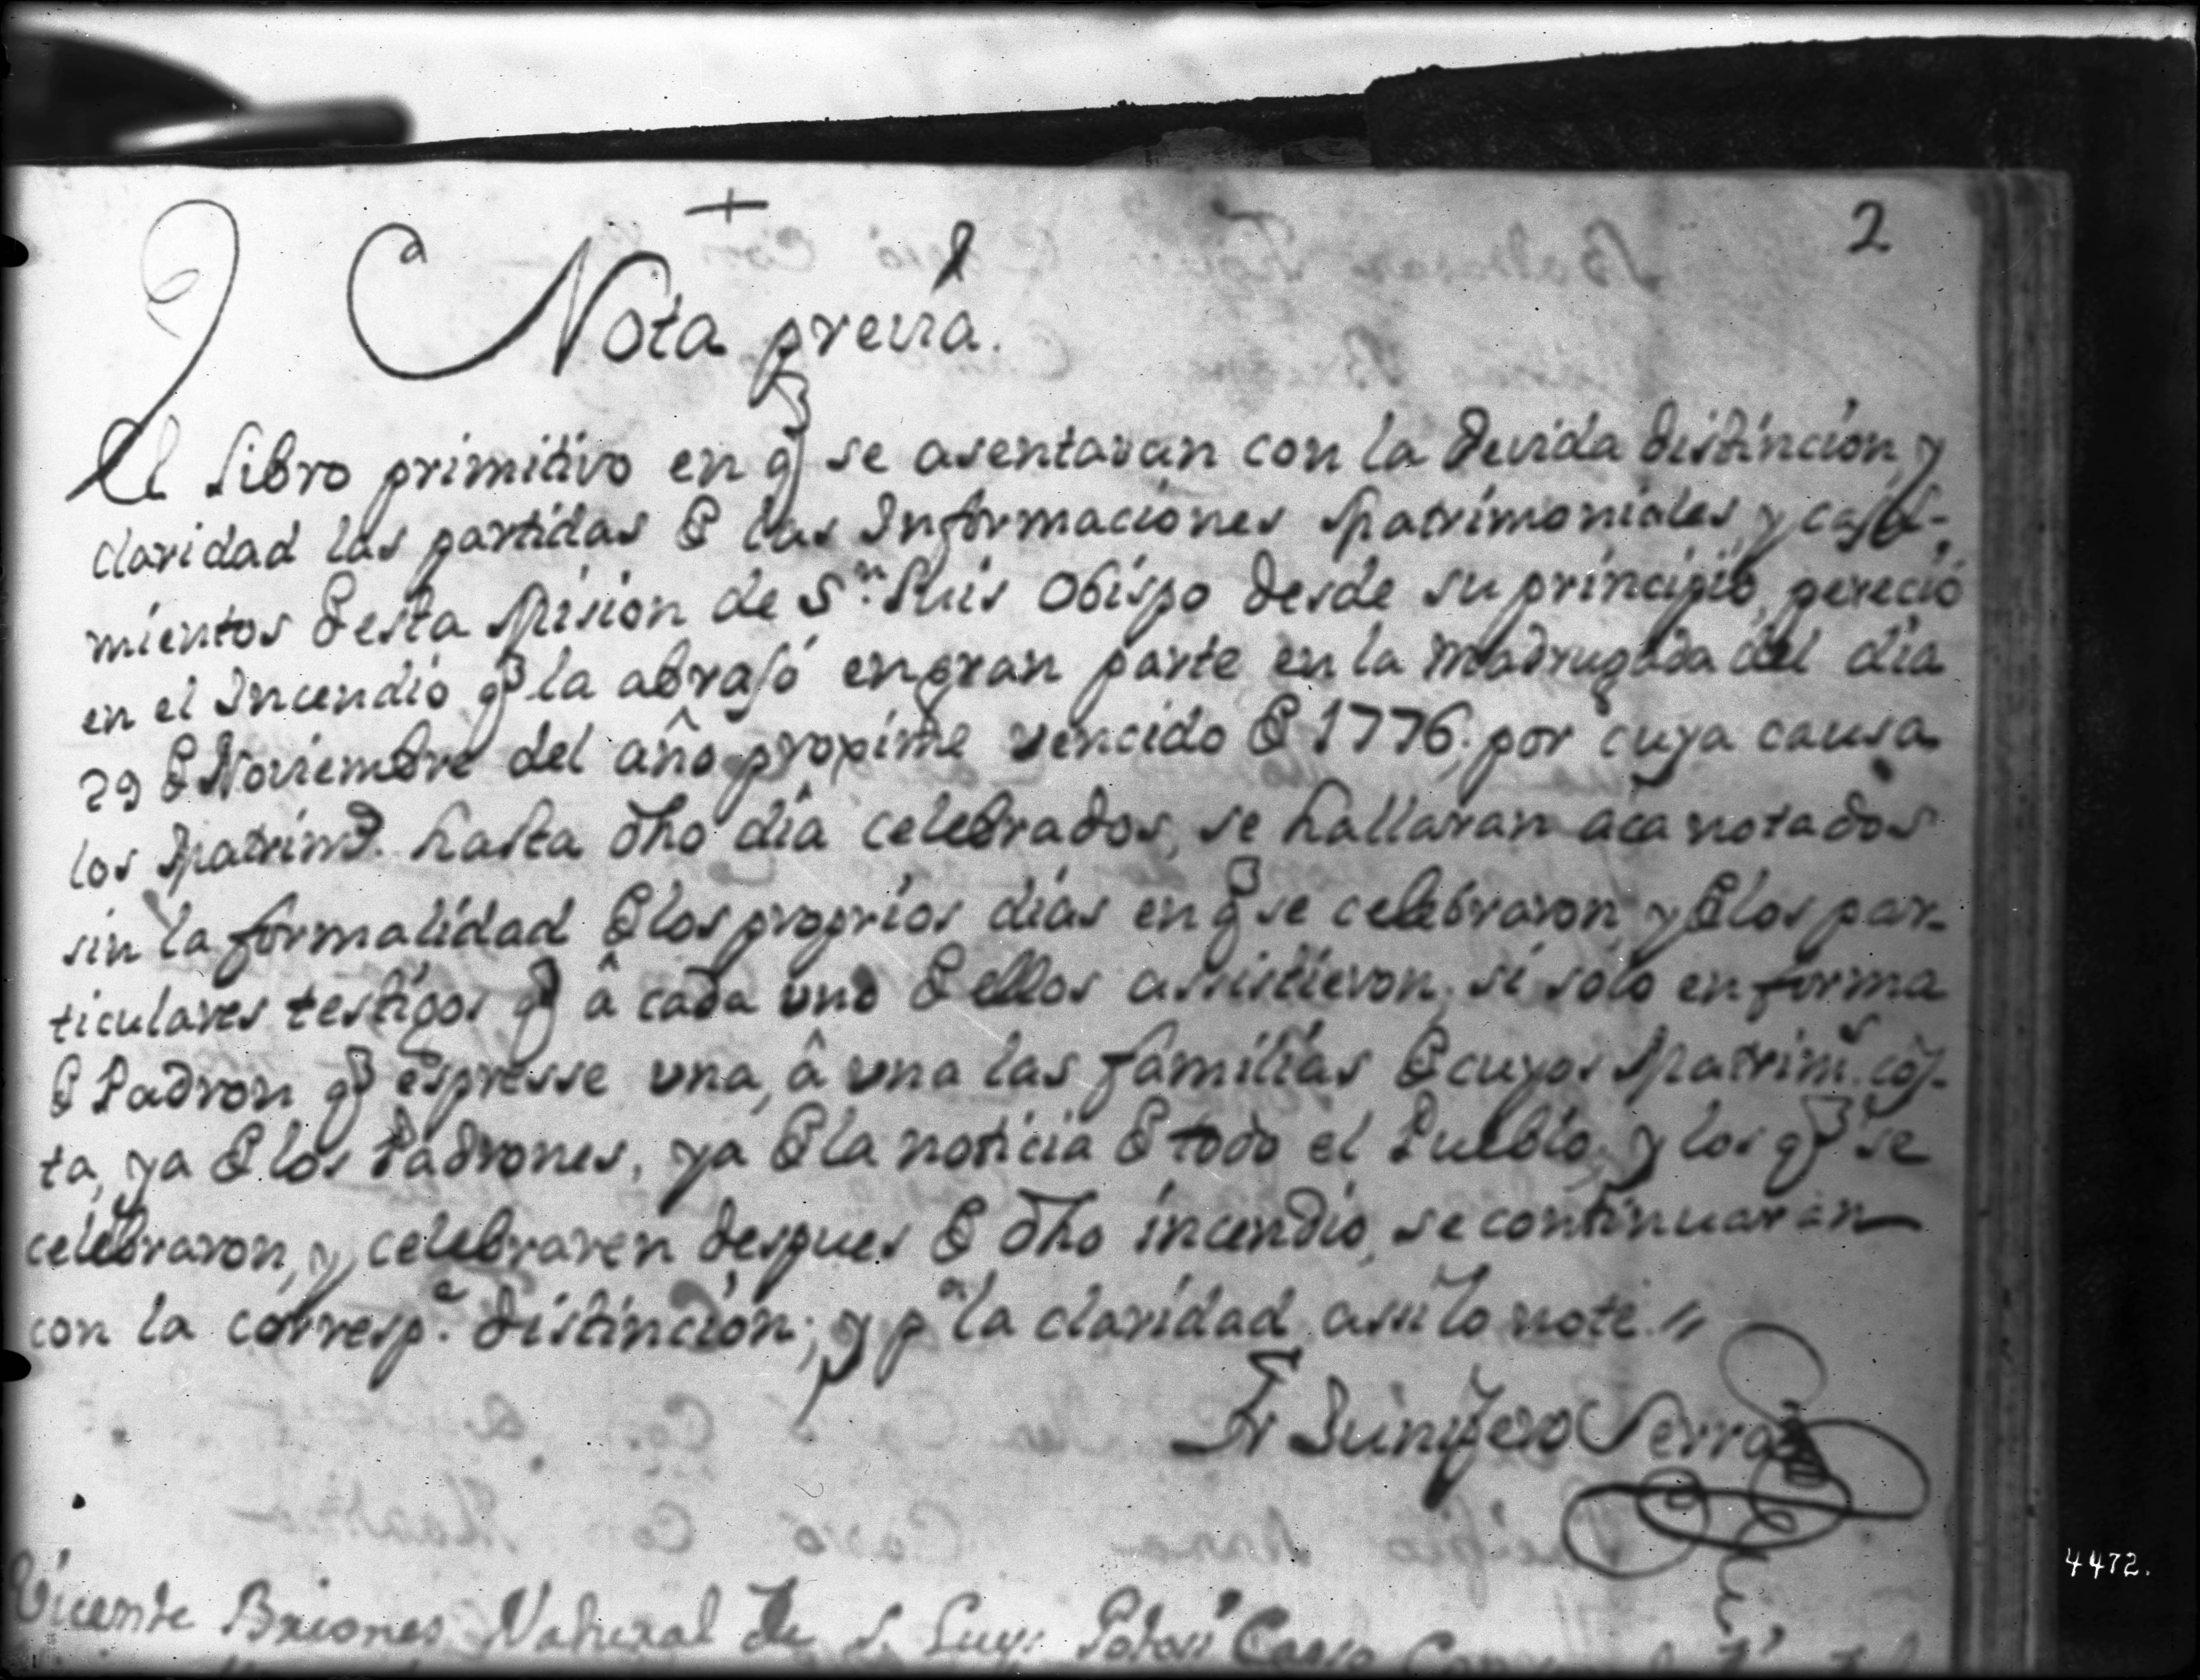 +
2
Nota previa.
El Libro primitivo en q̃ se asentavan con la devida distincion, y
claridad las partidas de las Informaciones Matrimoniales, y casa-
mientos de esta Mision de Sn. Luis Obispo desde su principio, pereciò
en el Incendio q̃ la abrasó en gran parte en la madrugada del dia
29 de Noviembre del año proximè vencido de 1776, por cuya causa
los Matrims. hasta dho dia celebrados, se hallaran aca notados
sin la formalidad de los proprios dias en q̃ se celebraron y de los par-
ticulares testigos q̃ â cada uno de ellos assistieron, si solo en forma
de Padron q̃ espresse una, â una las familias de cuyos Matrims. cõs-
ta, ya de los Padrones, ya de la noticia de todo el Pueblo, y los q̃ se
celebraron, y celebraren despues de dho incendio, se continuaran
con la correspe. distincion; y pa. la claridad assi lo notè. //
Fr Junipero Serra
Vicente Briones Natural de S. Luys Potosi Casso
4472.